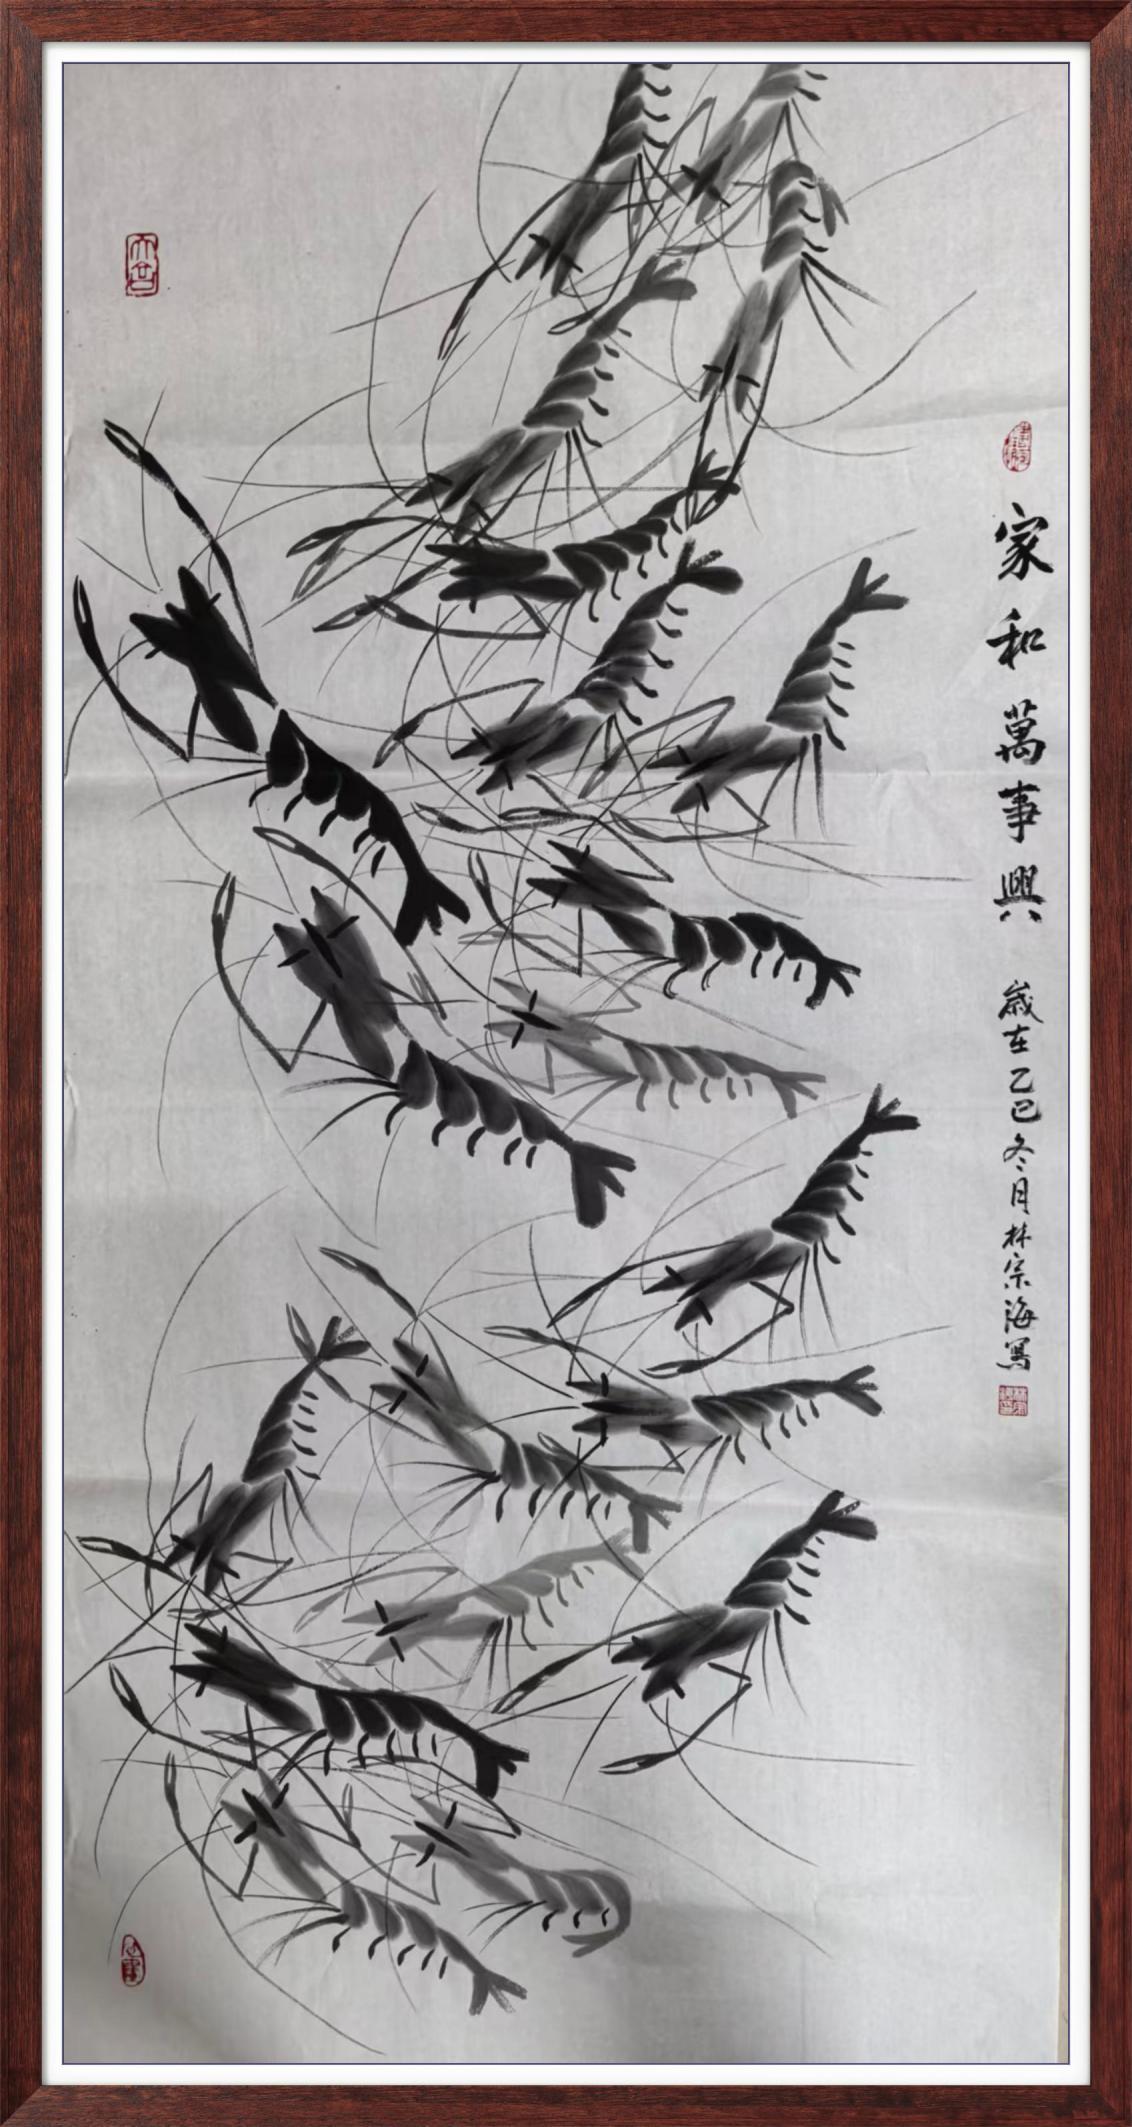 家和萬事興
歲在乙巳冬月林宗海寫